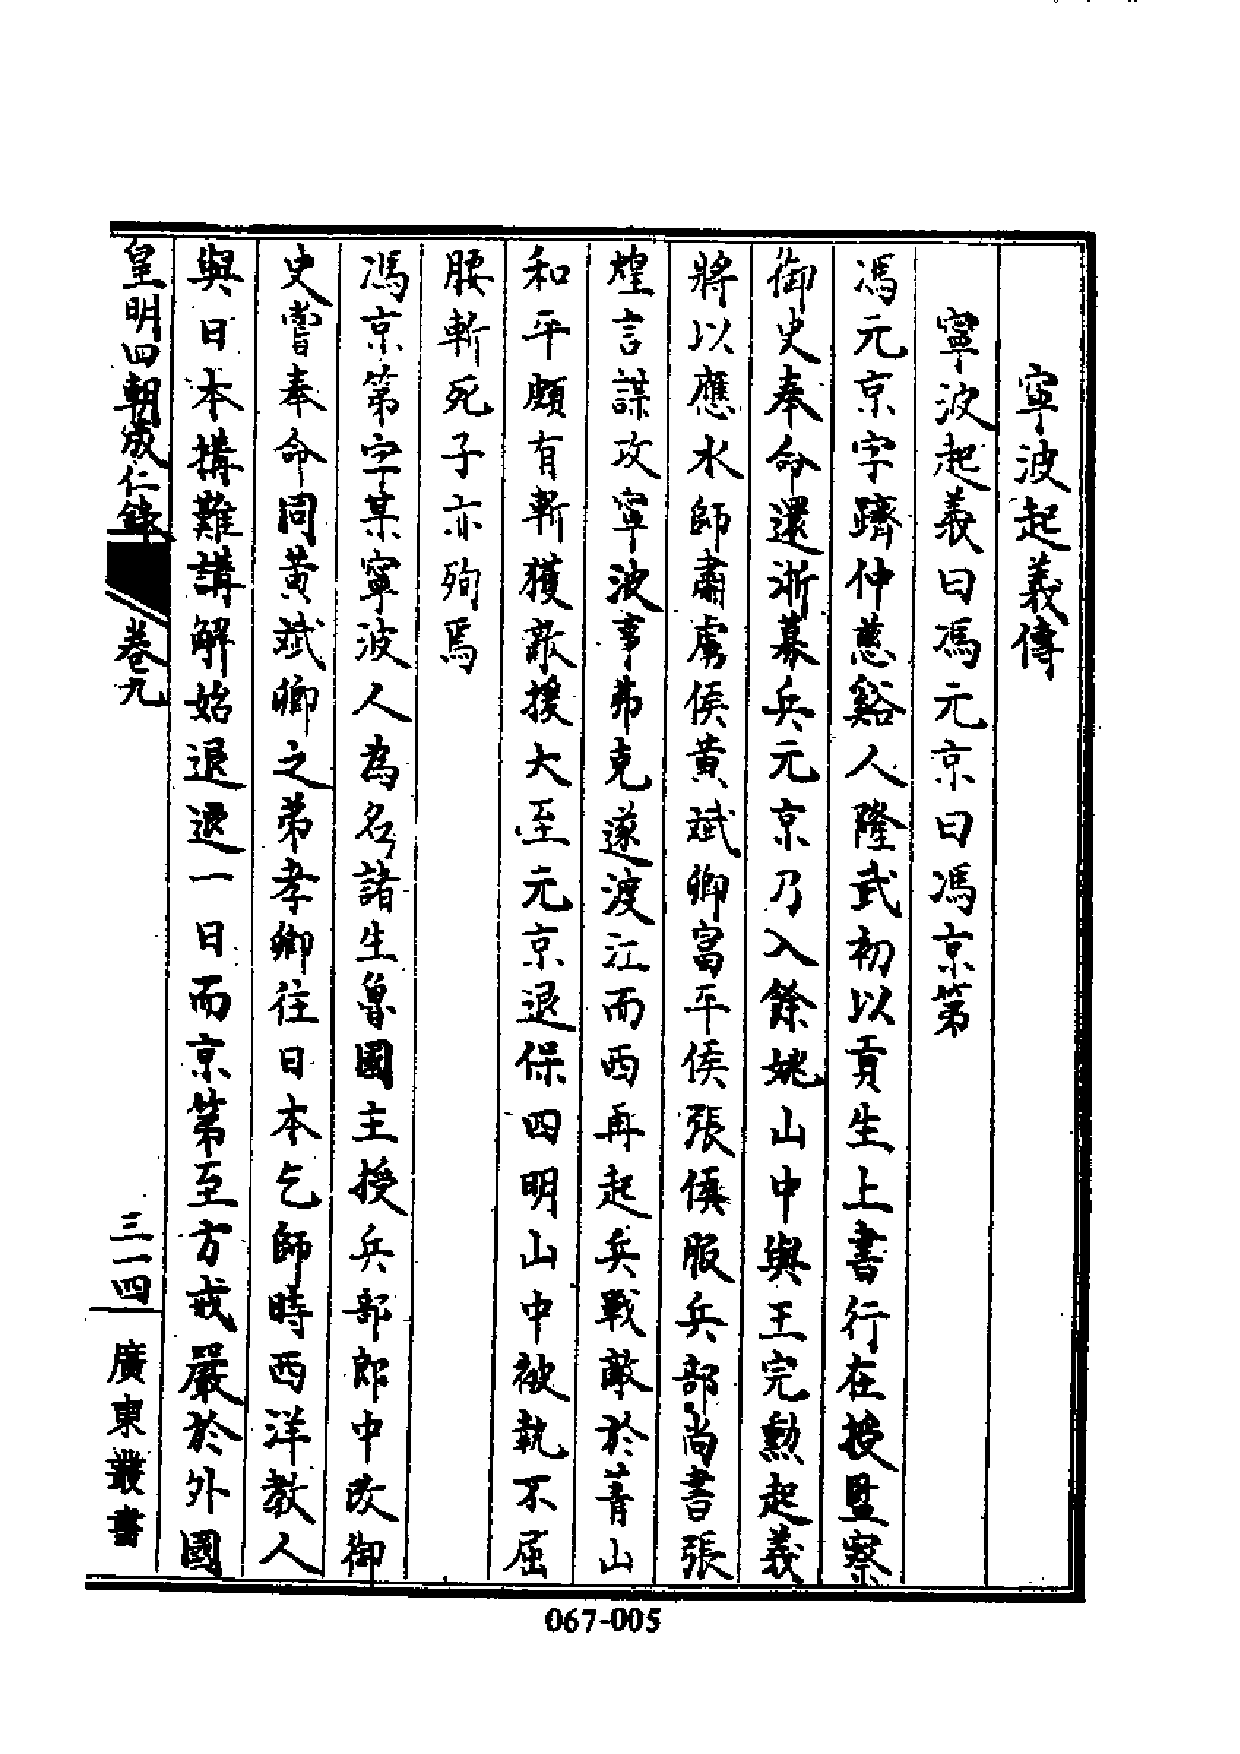 寧波起義傳
寧波起義曰馮元京曰馮京第
馮元京字躋仲慈谿人隆武初以貢生上書行在授監察
御史奉命還浙募兵元京乃入餘姚山中與王完勳起義
將以應水師肅虜侯黃斌卿富平侯張傎服兵部尚書張
煌言謀攻寧波事弗克遂渡江而西再起兵戰敵於菁山
和平頗有斬獲敵援大至元京退保四明山中被執不屈
腰斬死子亦殉焉
馮京第字某寧波人為名諸生魯國主授兵部郎中改御
史嘗奉命同黃斌卿之弟孝卿往日本乞師時西洋教人
與日本搆難講解始退退一日而京第至方戒嚴於外國
皇明四朝成仁錄 卷九 三一四 廣東叢書
067-005